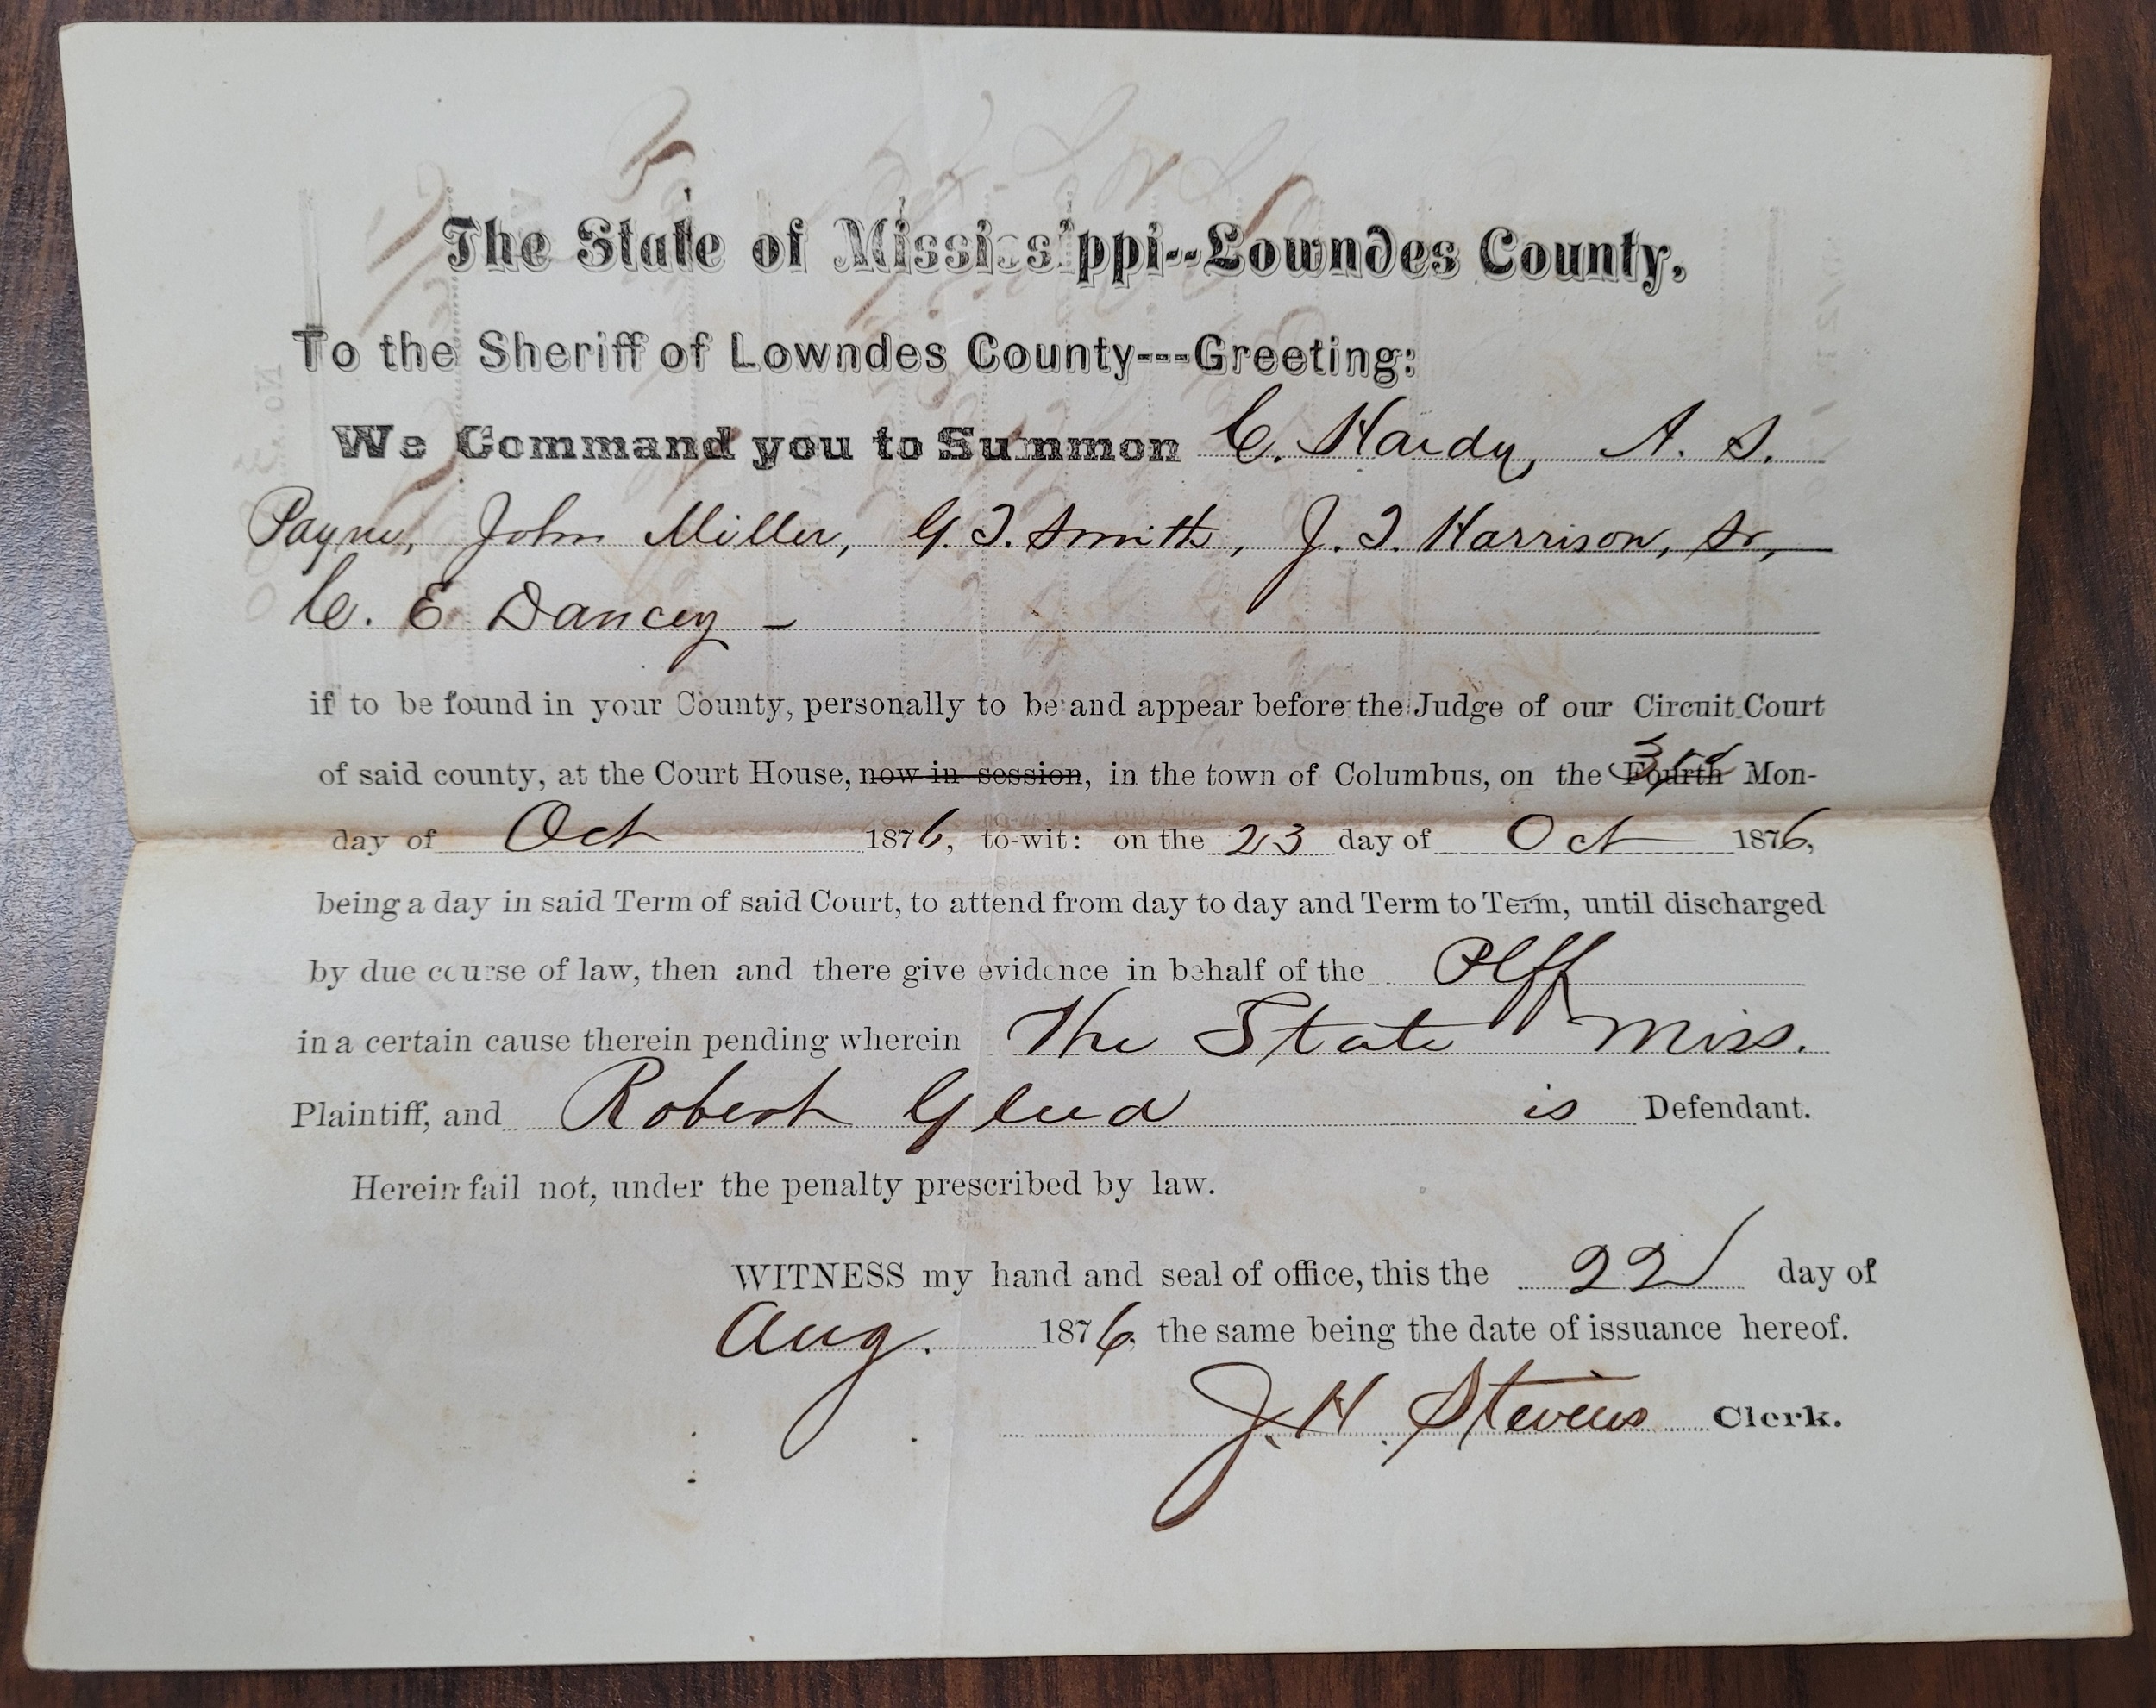 The State of Mississippi--Lowndes County.
To the Sheriff of Lowndes County---Greeting:
We Command you to Summon C. Hardy, A. S.
Payne, John Miller, G. T. Smith, J. T. Harrison, Sr,
C. E Dancey -
if to be found in your County, personally to be and appear before the Judge of our Circuit Court
of said county, at the Court House, now in session, in the town of Columbus, on the Fourth 3rd Mon-
day of Oct 1876, to-wit: on the 23 day of Oct 1876,
being a day in said Term of said Court, to attend from day to day and Term to Term, until discharged
by due course of law, then and there give evidence in behalf of the Plff
in a certain cause therein pending wherein The State Miss.
Plaintiff, and Robert Gleed is Defendant.
Herein fail not, under the penalty prescribed by law.
WITNESS my hand and seal of office, this the 22 day of
Aug. 1876, the same being the date of issuance hereof.
J. H. Stevens Clerk.